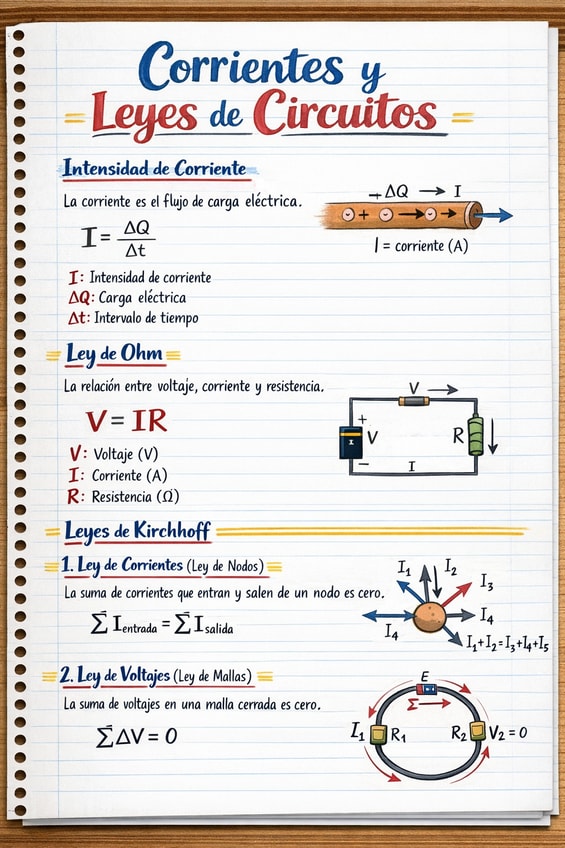 Corrientes y
Leyes de Circuitos
Intensidad de Corriente
La corriente es el flujo de carga eléctrica.
I = ΔQ / Δt
I: Intensidad de corriente
ΔQ: Carga eléctrica
Δt: Intervalo de tiempo
→ ΔQ → I
− + − → − →
I = corriente (A)
Ley de Ohm
La relación entre voltaje, corriente y resistencia.
V = IR
V: Voltaje (V)
I: Corriente (A)
R: Resistencia (Ω)
V →
+
V
R
−
I
Leyes de Kirchhoff
1. Ley de Corrientes (Ley de Nodos)
La suma de corrientes que entran y salen de un nodo es cero.
Σ I entrada = Σ I salida
I₁
I₂
I₃
I₄
I₄
I₁+I₂=I₃+I₄+I₅
2. Ley de Voltajes (Ley de Mallas)
La suma de voltajes en una malla cerrada es cero.
ΣΔV = 0
E
Σ →
I₁ R₁
R₂ V₂ = 0